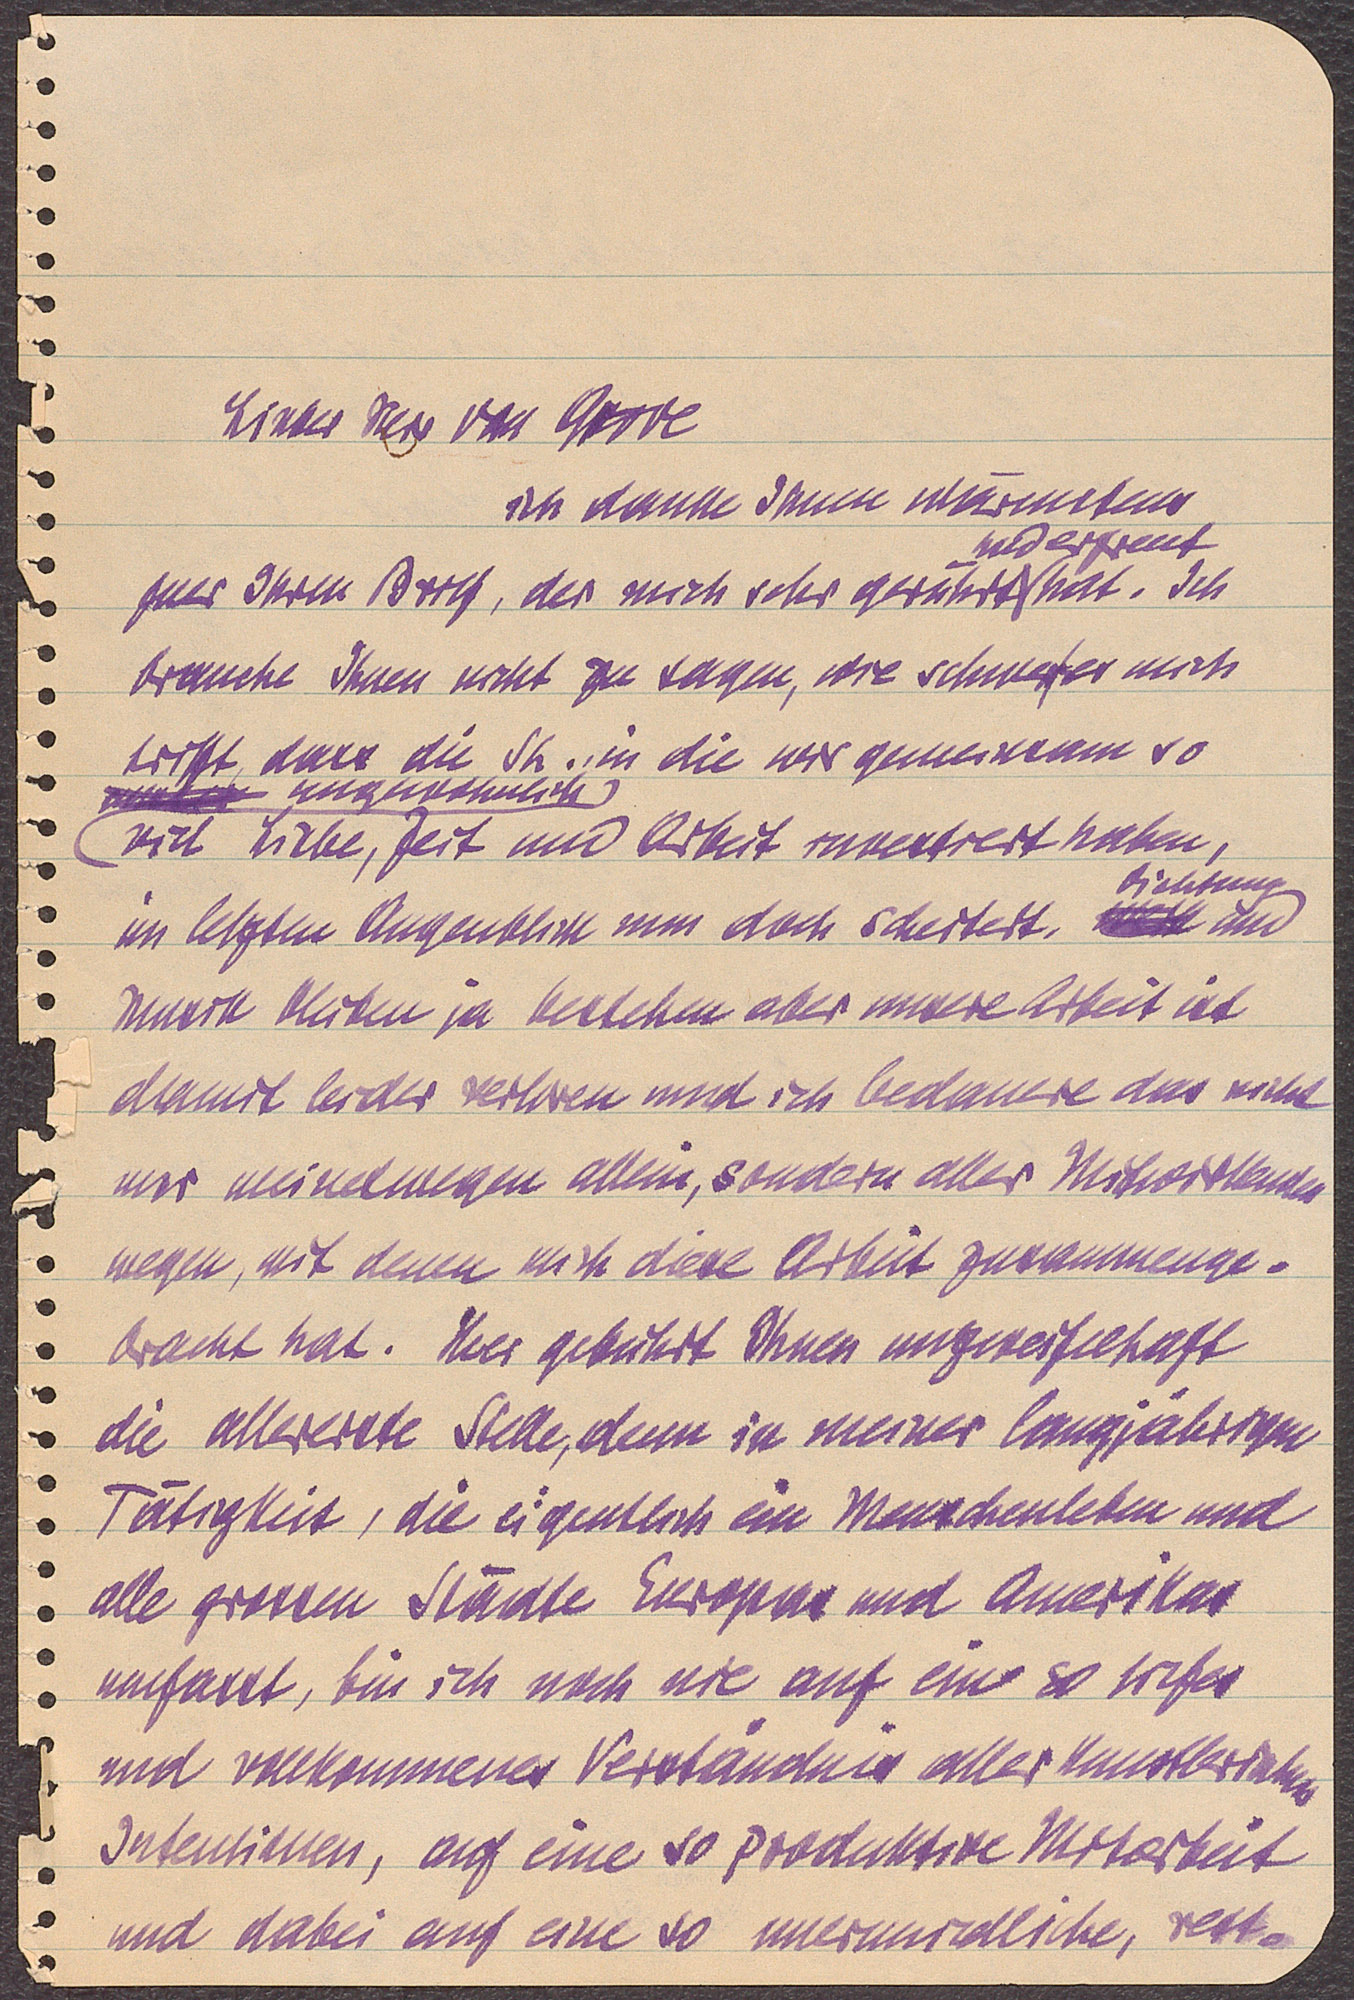 Lieber Herr van Grove
ich danke Ihnen wärmstens
und erfreut
fuer Ihren Brief, der mich sehr gerührt hat. Ich
brauche Ihnen nicht zu sagen, wie schwer es mich
trifft, dass die Sh. in die wir gemeinsam so
ungewöhnlich
viel Liebe, Zeit und Arbeit investiert haben,
im letzten Augenblick nun doch scheitert.
Dichtung
und
Musik bleiben ja bestehen aber unsere Arbeit ist
damit leider verloren und ich bedauere das nicht
nur meinetwegen allein, sondern aller Mitwirkenden
wegen, mit denen mich diese Arbeit zusammenge-
bracht hat. Hier gebührt Ihnen unzweifelhaft
die allererste Stelle, denn in meiner langjährigen
Tätigkeit, die eigentlich ein Menschenleben und
alle grossen Städte Europas und Amerikas
umfasst, bin ich noch nie auf ein so tiefes
und vollkommenes Verständnis aller künstlerischen
Intentionen, auf eine so produktive Mitarbeit
und dabei auf eine so unermüdliche, rest-